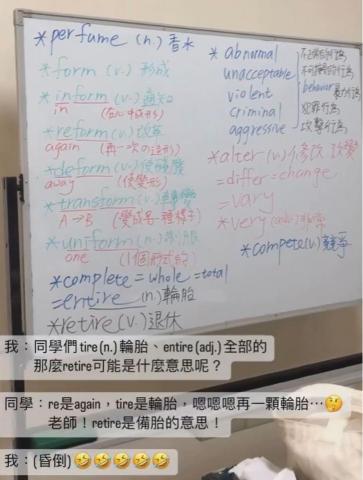 *perfume (n.) 香水
*form (v.) 形成
*inform (v.) 通知
in (在心中成形)
*reform (v.) 改革
again (再一次的注形)
*deform (v.) 使變形
away (使變形)
*transform (v.)
A→B (變成另一種樣子)
*uniform (n.) 制服
one (1個形式的)
*complete = whole = total
= entire (n.) 輪胎
*retire (v.) 退休
*abnormal
unacceptable
violent
criminal
aggressive
behavior
犯罪行為
攻擊行為
*alter (v.) 修改 改變
= differ = change
= vary
*very (adv.) 非常
*compete (v.) 競爭
我：同學們tire(n.)輪胎、entire(adj.)全部的
那麼retire可能是什麼意思呢？
同學：re是again，tire是輪胎，嗯嗯嗯再一顆輪胎…🤔
老師！retire是備胎的意思！
我：(昏倒)🤣🤣🤣🤣🤣